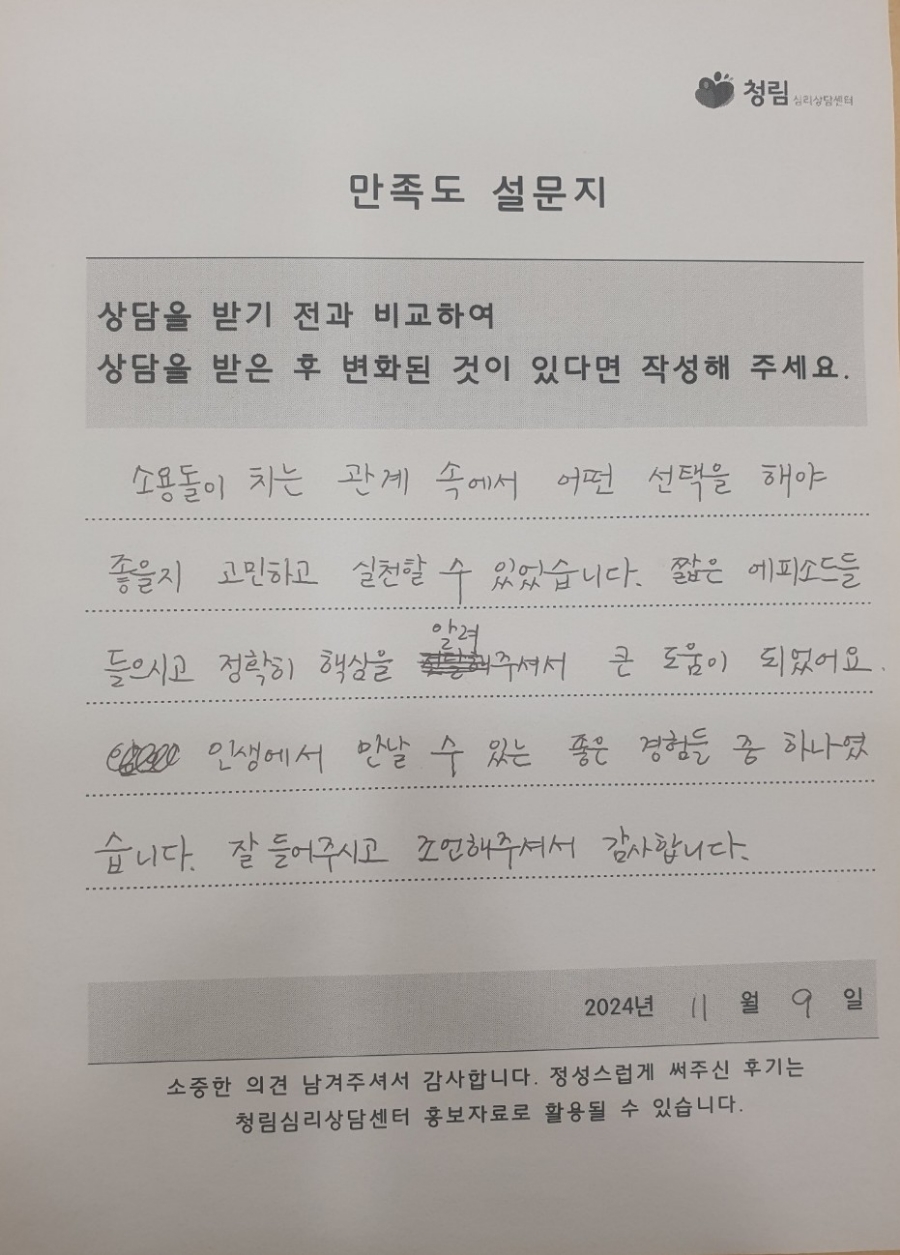 청림 심리상담센터
만족도 설문지
상담을 받기 전과 비교하여
상담을 받은 후 변화된 것이 있다면 작성해 주세요.
소용돌이 치는 관계 속에서 어떤 선택을 해야
좋을지 고민하고 실천할 수 있었습니다. 짧은 에피소드들
들으시고 정확히 핵심을 알려주셔서 큰 도움이 되었어요.
인생에서 만날 수 있는 좋은 경험들 중 하나였
습니다. 잘 들어주시고 조언해주셔서 감사합니다.
2024년 11 월 9 일
소중한 의견 남겨주셔서 감사합니다. 정성스럽게 써주신 후기는
청림심리상담센터 홍보자료로 활용될 수 있습니다.